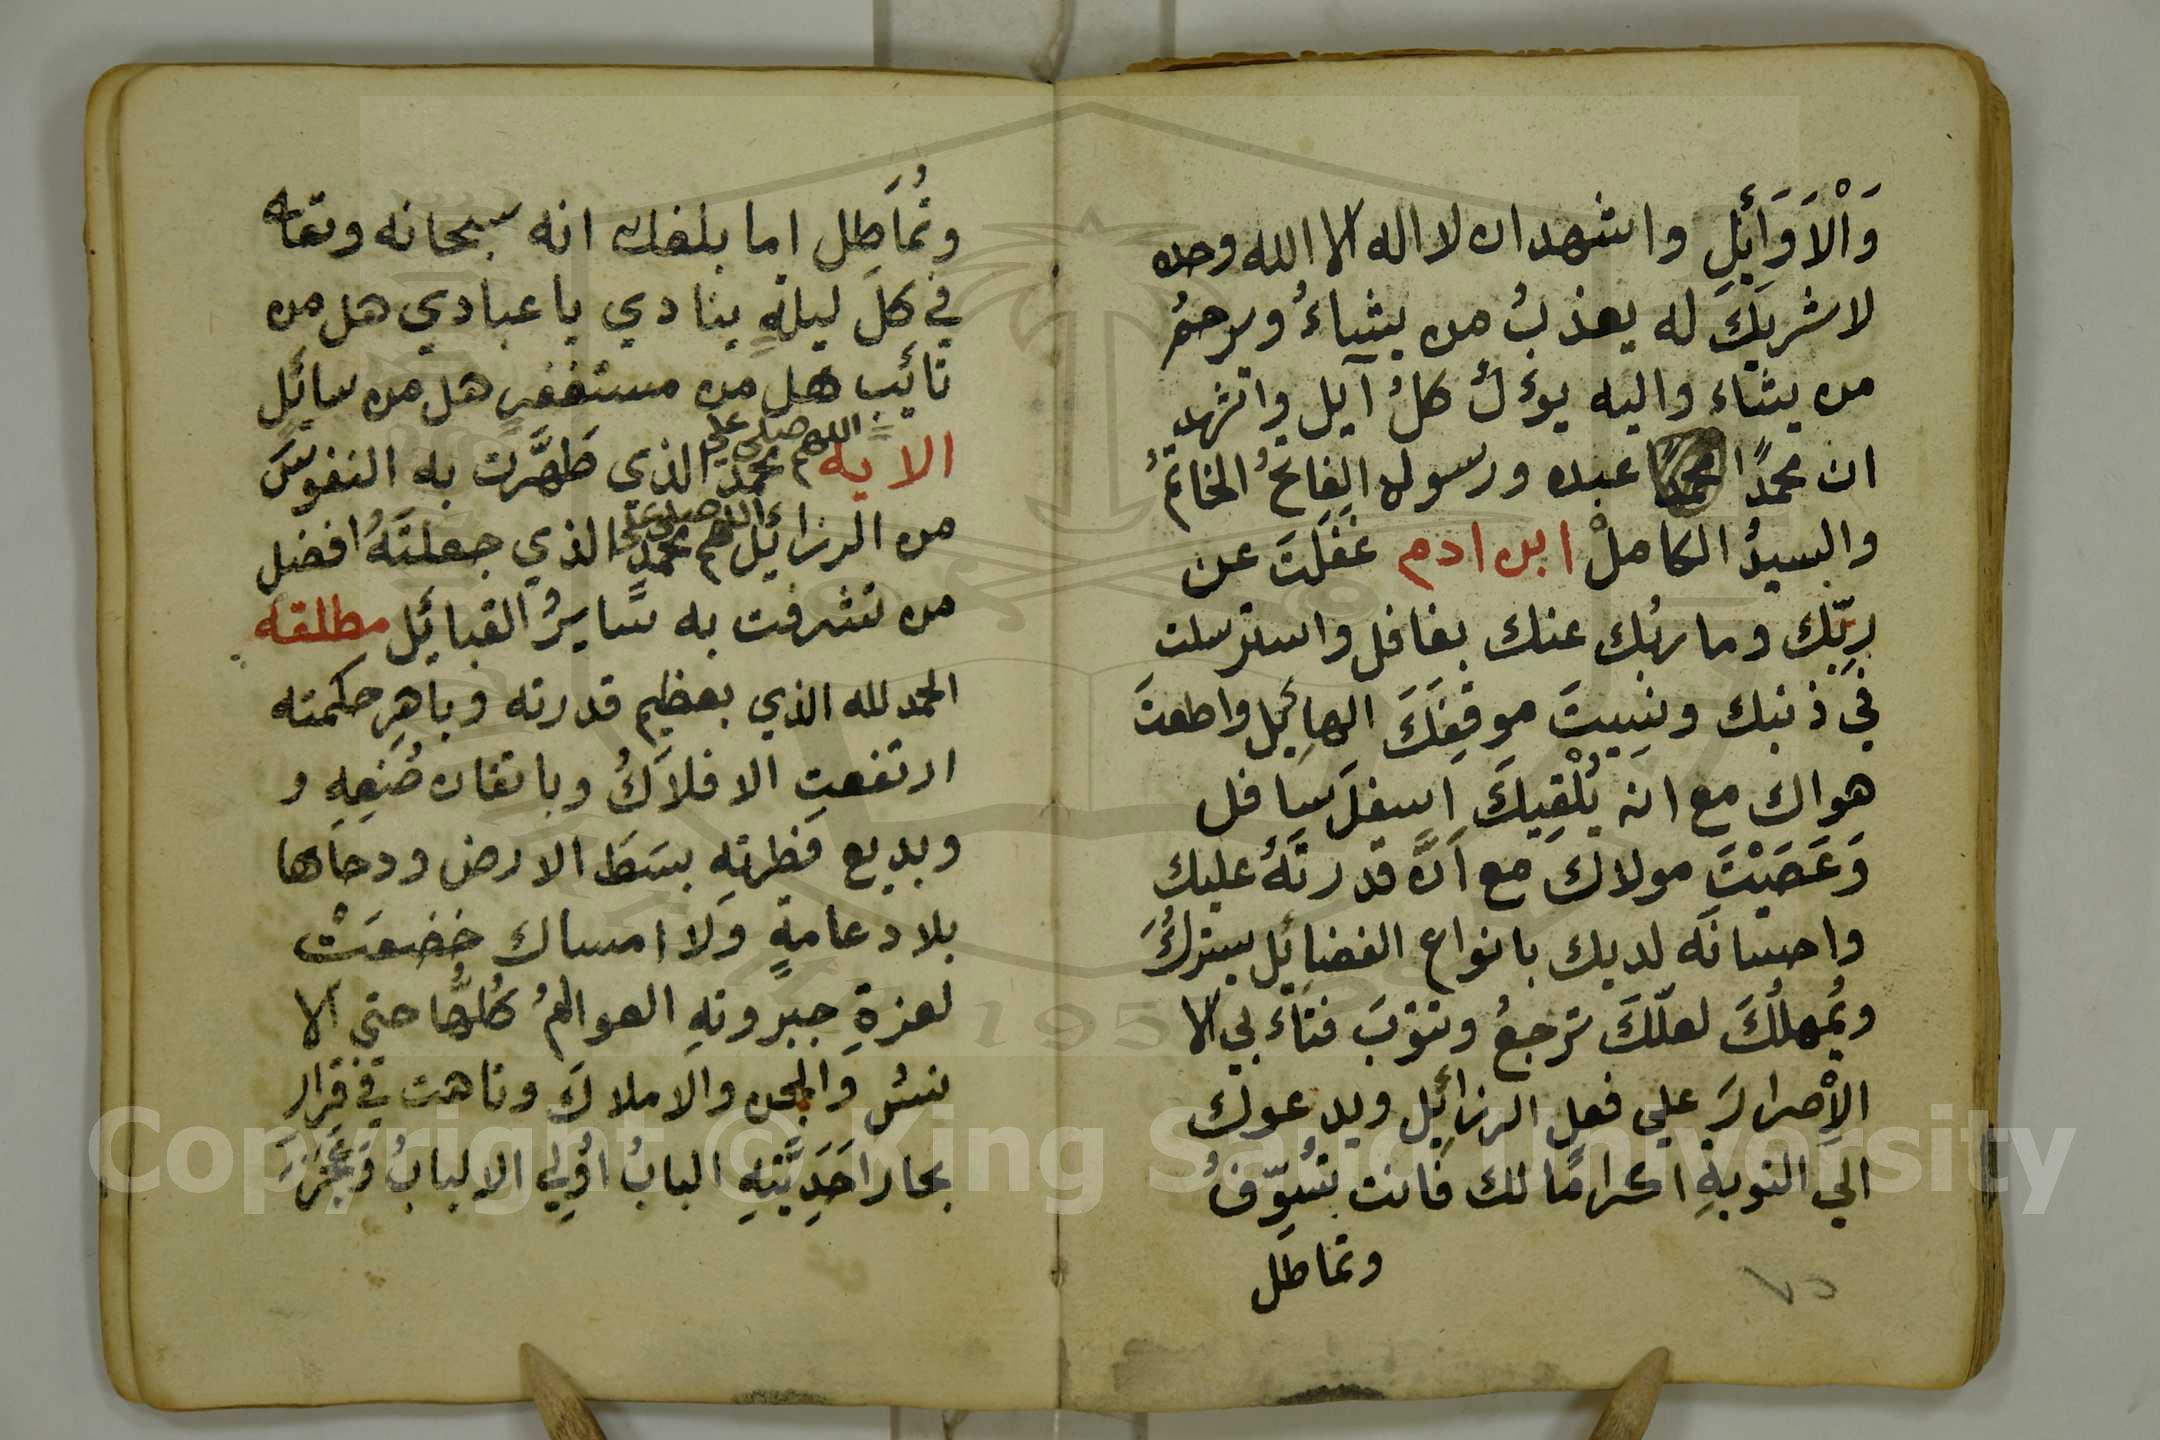 وَالْاَوَأَئِلِ واشهد ان لا اله الا الله وحده
لا شريكَ له يعذبُ من يشاءُ ويرحمُ
من يشاء واليه يؤلُ كلُ آيل واشهد
ان محمدًا عبده ورسوله الفاتحُ الخاتمُ
والسيدُ الكاملْ ابن ادم غفلتَ عن
ربِّك وما ربُك عنك بغافل واسترسلت
في ذنبك ونسيتَ موقفَكَ الهائِل واطعتَ
هواك مع انه يُلْقِيكَ اسفلَ سافل
وَعَصَيْتَ مولاك مع اَنَّ قدرتَهُ عليك
واحسانَه لديك بانواع الفضائِل يسترُكَ
ويُمهلُكَ لعلّكَ ترجعُ وتتوبَ فتاءبي الا
الاِصرارَ علي فعل الرزائِل ويدعوك
الي التوبةِ اكرامًا لك فانت تُسَوِّفُ
وتماطل
وتُمَاطِل اما بلغك انه سبحانه وتعاله
في كلِ ليلةٍ ينادي يا عبادي هل من
تائَبٍ هل من مستغفرٍ هل من سائلٍ
الايه اللهم صلي علي محمدٍ الذي طَهَّرت به النفوسَ
من الرزائِل اللهم صلي علي محمدٍ الذي جعلتَهُ افضل
من تشرفت به سَايرُ القبائِل مطلقه
الحمد لله الذي بعظيم قدرته وباهِرِ حكمته
ارتفعتِ الافلاَكُ وباتقان صُنعِهِ و
وبديع فطرتهِ بسَطَ الارض ودحاها
بلا دعامةٍ ولا امساك خضعَتْ
لعزةِ جبروتهِ العوالمُ كلُّها حتي الا
نسُ والجن والاملاكَ وتاهت في قرارِ
بحار احَدِيَّتهِ البابُ اوُلِي الالبابُ وَعَجَزَ